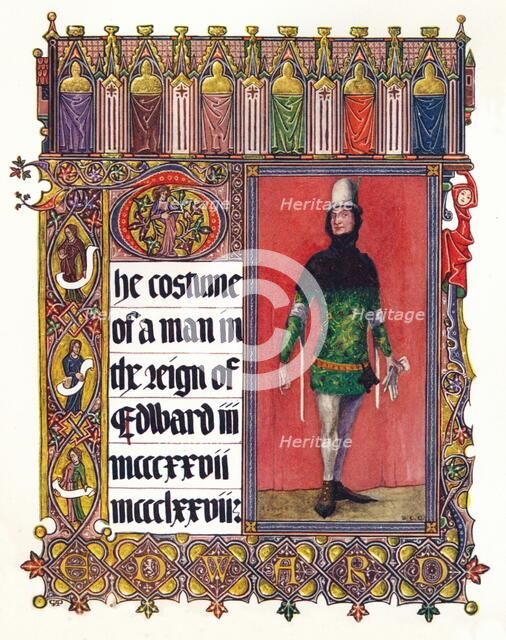 The costume
of a man in
the reign of
Edward iii
mcccxxvii
mccclxxvii:
EDWARD
Heritage
Heritage
Heritage
Heritage
Heritage
Heritage